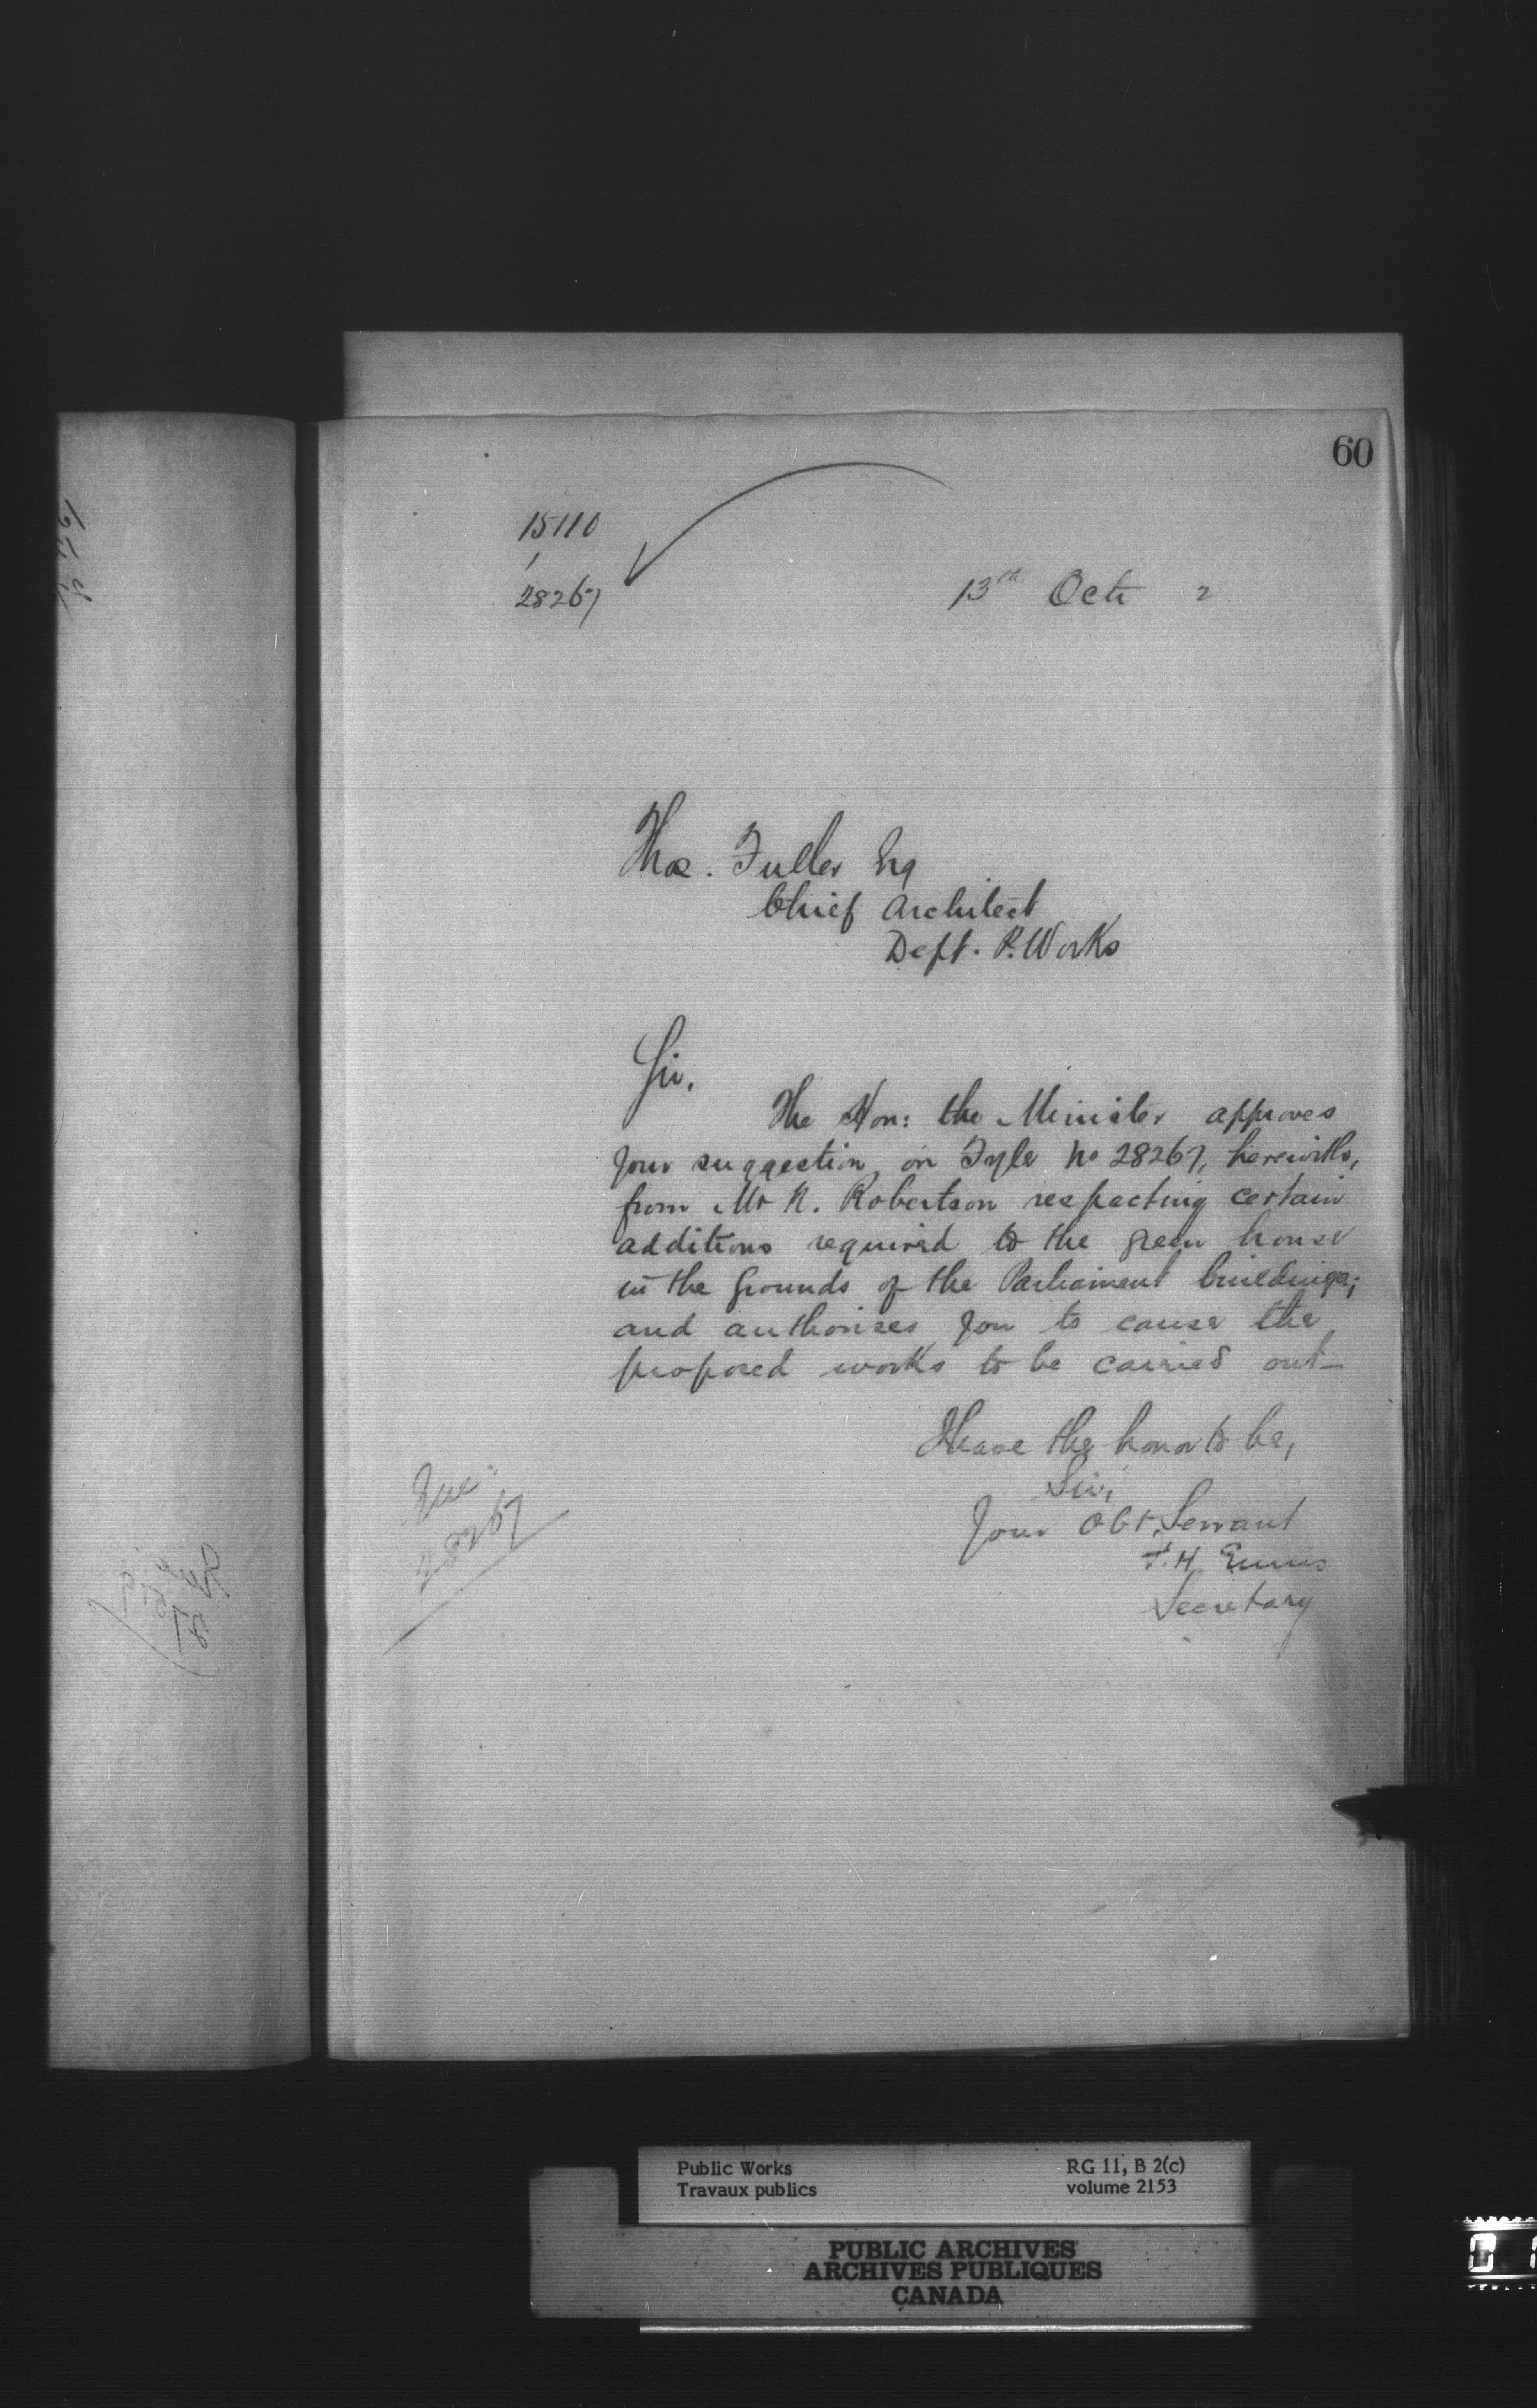 60
15110
28267
13th Octr 2
Thos. Fuller Esq
Chief Architect
Dept. P. Works
Sir,
The Hon: the Minister approves
your suggestion, on Fyle No 28267, herewith,
from Mr R. Robertson respecting certain
additions required to the green house
in the grounds of the Parliament buildings;
and authorises you to cause the
proposed works to be carried out—
I have the honor to be,
Sir,
Your Obt. Servant
F. H. Ennis
Secretary
28267
Public Works
Travaux publics
RG 11, B 2(c)
volume 2153
PUBLIC ARCHIVES
ARCHIVES PUBLIQUES
CANADA